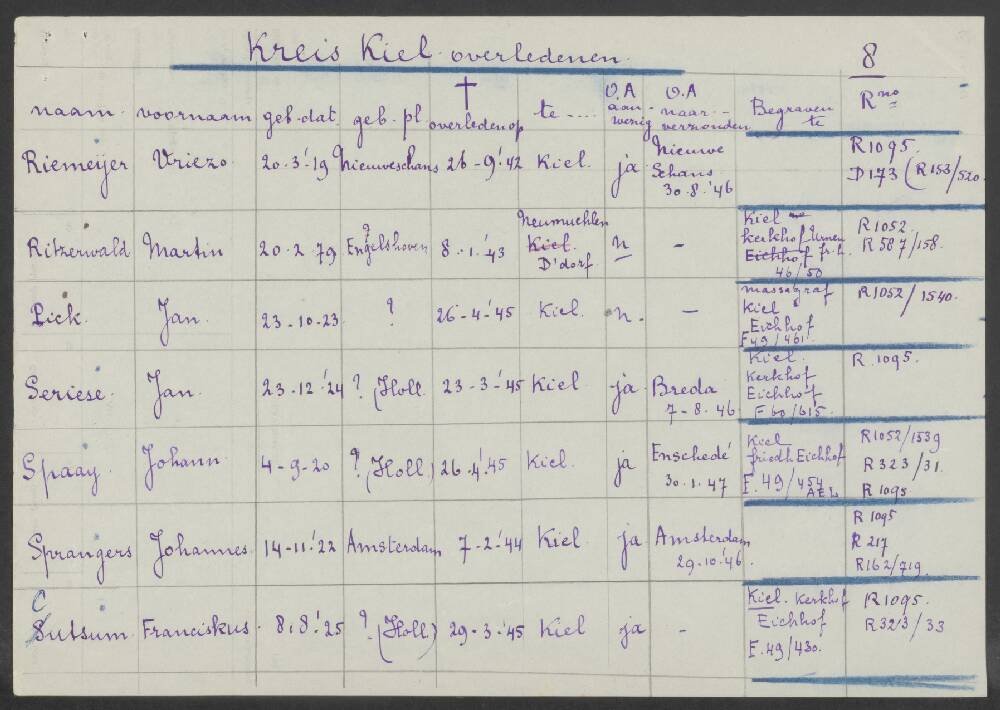 Kreis Kiel overledenen. 8
naam. voornaam geb. dat. geb. pl. † overleden op te .... O.A aanwezig O.A. naar verzonden Begraven te R no
Riemeijer Vriezo 20-3-'19 Nieuweschans 26-9-'42 Kiel. ja Nieuwe Schans 30.8.'46 R1095. D173 (R153/520.
Ritzerwald Martin 20.2.79 ? Engelshoven 8.1.'43 Neumuehlen Kiel. D'dorf n - Kiel Kerkhof Urnen Eichhof fr.h. 46/50 R1052. R587/158.
Pick. Jan. 23-10-23 ? 26-4-'45 Kiel. n. - massagraf Kiel Eichhof F49/461 R1052/1540.
Seriese. Jan. 23.12.'24 ? (Holl. 23-3-'45 Kiel ja Breda 7-8.46 Kiel. Kerkhof Eichhof F60/615. R.1095.
Spaay. Johann 4-9-20 ? (Holl.) 26.4.'45 Kiel. ja Enschedé 30.1.47 Kiel friedh. Eichhof F.49/454 AEL R1052/1539 R323/31. R1095
Sprangers Johannes 14-11.'22 Amsterdam 7-2.'44 Kiel ja Amsterdam 29.10.'46. R1095 R217 R162/719.
C
Sutsum. Franciskus. 8.8.'25 ? (Holl.) 29-3.'45 Kiel ja - Kiel. Kerkhof Eichhof F.49/430. R1095. R323/33